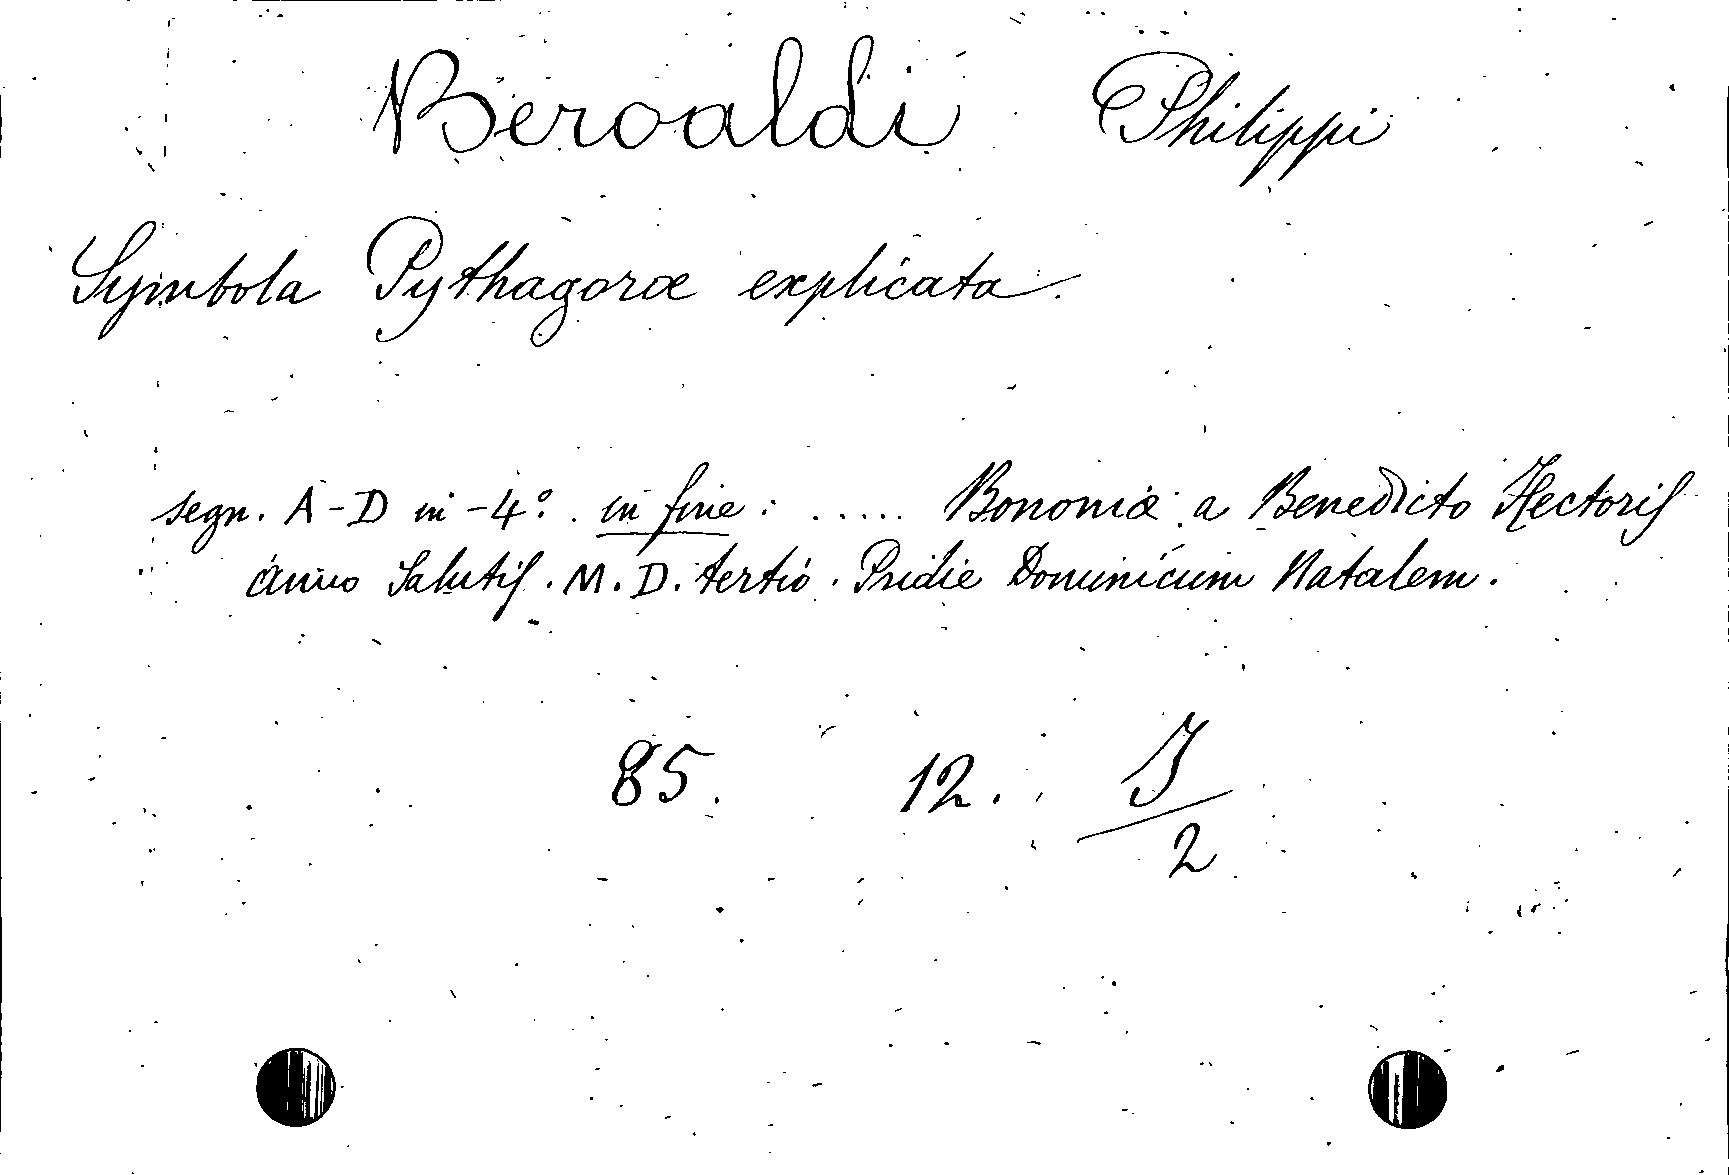 Beroaldi Philippi
Symbola Pythagoræ explicata.
segn. A-D in-4º. in fine: ..... Bononiæ a Benedicto Hectoris
anno Salutis. M.D. tertio. Pridie Dominicum Natalem.
85. 12. J/2